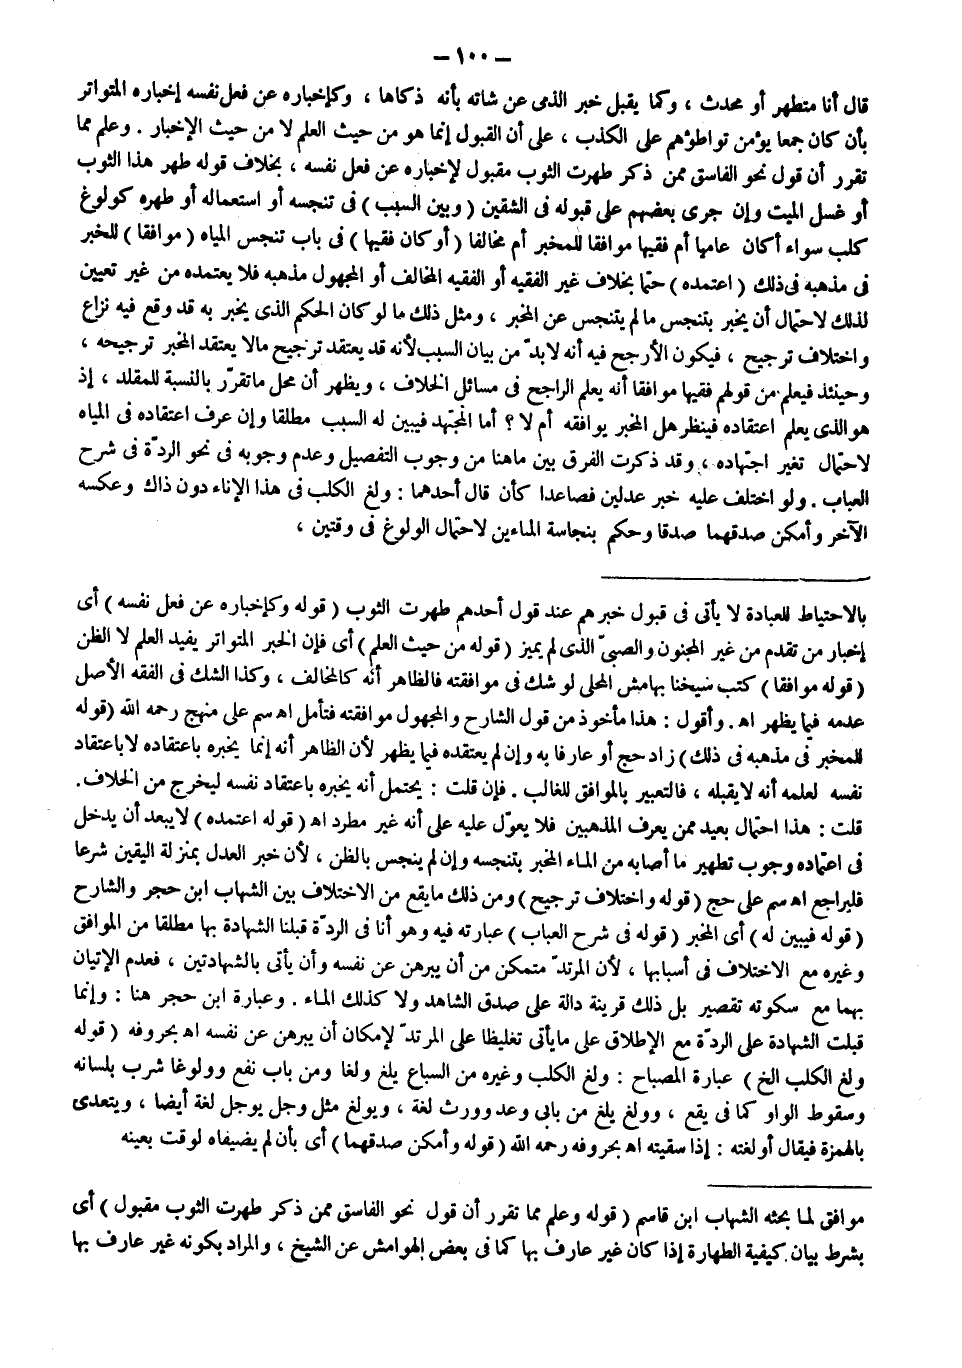 — ١٠٠ —
قال أنا متطهر أو محدث ، وكما يقبل خبر الذمى عن شاته بأنه ذكاها ، وكإخباره عن فعل نفسه إخباره المتواتر
بأن كان جمعا يؤمن تواطؤهم على الكذب ، على أن القبول إنما هو من حيث العلم لا من حيث الإخبار . وعلم مما
تقرر أن قول نحو الفاسق ممن ذكر طهرت الثوب مقبول لإخباره عن فعل نفسه ، بخلاف قوله طهر هذا الثوب
أو غسل الميت وإن جرى بعضهم على قبوله فى الشقين ( وبين السبب ) فى تنجسه أو استعماله أو طهره كولوغ
كلب سواء أكان عاميا أم فقيها موافقا للمخبر أم مخالفا ( أو كان فقيها ) فى باب تنجس المياه ( موافقا ) للخبر
فى مذهبه فى ذلك ( اعتمده ) حتما بخلاف غير الفقيه أو الفقيه المخالف أو المجهول مذهبه فلا يعتمده من غير تعيين
لذلك لاحتمال أن يخبر بتنجس ما لم يتنجس عن المخبر ، ومثل ذلك ما لو كان الحكم الذى يخبر به قد وقع فيه نزاع
واختلاف ترجيح ، فيكون الأرجح فيه أنه لابدّ من بيان السبب لأنه قد يعتقد ترجيح مالا يعتقد المخبر ترجيحه ،
وحينئذ فيعلم من قولهم فقيها موافقا أنه يعلم الراجح فى مسائل الخلاف ، ويظهر أن محل ماتقرّر بالنسبة للمقلد ، إذ
هو الذى يعلم اعتقاده فينظر هل المخبر يوافقه أم لا ؟ أما المجتهد فيبين له السبب مطلقا وإن عرف اعتقاده فى المياه
لاحتمال تغير اجتهاده ، وقد ذكرت الفرق بين ماهنا من وجوب التفصيل وعدم وجوبه فى نحو الردّة فى شرح
العباب . ولو اختلف عليه خبر عدلين فصاعدا كأن قال أحدهما : ولغ الكلب فى هذا الإناء دون ذاك وعكسه
الآخر وأمكن صدقهما صدقا وحكم بنجاسة الماءين لاحتمال الولوغ فى وقتين ،
بالاحتياط للعبادة لا يأتى فى قبول خبرهم عند قول أحدهم طهرت الثوب ( قوله وكإخباره عن فعل نفسه ) أى
إخبار من تقدم من غير المجنون والصبىّ الذى لم يميز ( قوله من حيث العلم ) أى فإن الخبر المتواتر يفيد العلم لا الظن
( قوله موافقا ) كتب شيخنا بهامش المحلى لو شك فى موافقته فالظاهر أنه كالمخالف ، وكذا الشك فى الفقه الأصل
عدمه فيما يظهر اه . وأقول : هذا مأخوذ من قول الشارح والمجهول موافقته فتأمل اه سم على منهج رحمه الله ( قوله
للمخبر فى مذهبه فى ذلك ) زاد حج أو عارفا به وإن لم يعتقده فيما يظهر لأن الظاهر أنه إنما يخبره باعتقاده لا باعتقاد
نفسه لعلمه أنه لا يقبله ، فالتعبير بالموافق للغالب . فإن قلت : يحتمل أنه يخبره باعتقاد نفسه ليخرج من الخلاف.
قلت : هذا احتمال بعيد ممن يعرف المذهبين فلا يعوّل عليه على أنه غير مطرد اه ( قوله اعتمده ) لا يبعد أن يدخل
فى اعتماده وجوب تطهير ما أصابه من الماء المخبر بتنجسه وإن لم ينجس بالظن ، لأن خبر العدل بمنزلة اليقين شرعا
فليراجع اه سم على حج ( قوله واختلاف ترجيح ) ومن ذلك مايقع من الاختلاف بين الشهاب ابن حجر والشارح
( قوله فيبين له ) أى المخبر ( قوله فى شرح العباب ) عبارته فيه وهو أنا فى الردّة قبلنا الشهادة بها مطلقا من الموافق
وغيره مع الاختلاف فى أسبابها ، لأن المرتدّ متمكن من أن يبرهن عن نفسه وأن يأتى بالشهادتين ، فعدم الإتيان
بهما مع سكوته تقصير بل ذلك قرينة دالة على صدق الشاهد ولا كذلك الماء . وعبارة ابن حجر هنا : وإنما
قبلت الشهادة على الردّة مع الإطلاق على مايأتى تغليظا على المرتدّ لإمكان أن يبرهن عن نفسه اه بحروفه ( قوله
ولغ الكلب الخ ) عبارة المصباح : ولغ الكلب وغيره من السباع يلغ ولغا ومن باب نفع وولوغا شرب بلسانه
وسقوط الواو كما فى يقع ، وولغ يلغ من بابى وعد وورث لغة ، ويولغ مثل وجل يوجل لغة أيضا ، ويتعدى
بالهمزة فيقال أولغته : إذا سقيته اه بحروفه رحمه الله ( قوله وأمكن صدقهما ) أى بأن لم يضيفاه لوقت بعينه
موافق لما بحثه الشهاب ابن قاسم ( قوله وعلم مما تقرر أن قول نحو الفاسق ممن ذكر طهرت الثوب مقبول ) أى
بشرط بيان كيفية الطهارة إذا كان غير عارف بها كما فى بعض الهوامش عن الشيخ ، والمراد بكونه غير عارف بها